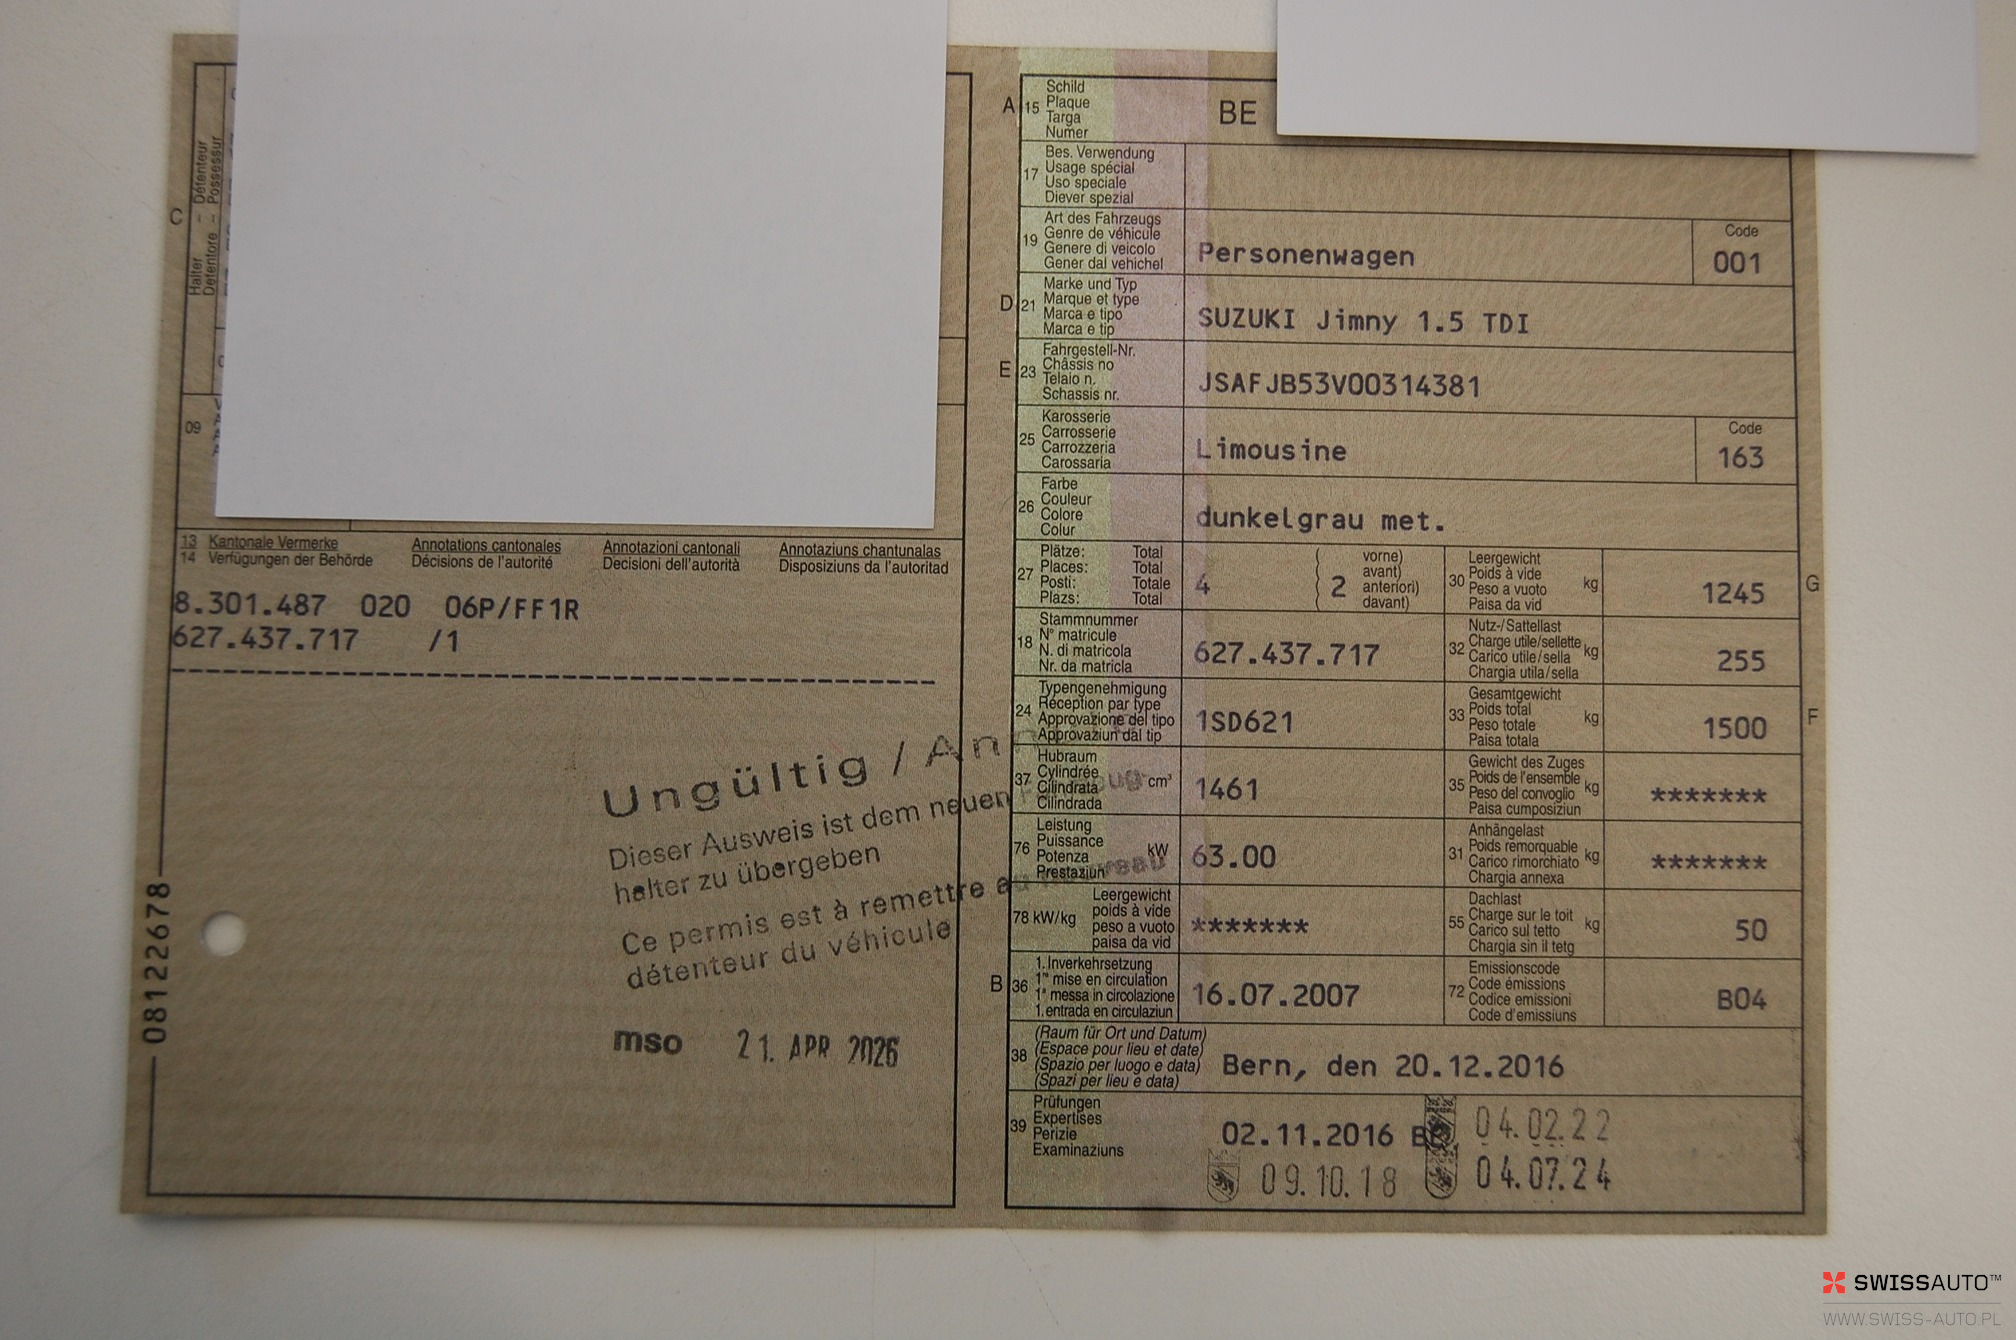 C
Halter - Détenteur
Detentore - Possessur
09
13 Kantonale Vermerke Annotations cantonales Annotazioni cantonali Annotaziuns chantunalas
14 Verfügungen der Behörde Décisions de l'autorité Decisioni dell'autorità Disposiziuns da l'autoritad
8.301.487 020 06P/FF1R
627.437.717 /1
Ungültig /
Dieser Ausweis ist dem neuen
halter zu übergeben
Ce permis est à remettre au
détenteur du véhicule
mso 21. APR 2026
08122678
A 15 Schild
Plaque
Targa
Numer
BE
17 Bes. Verwendung
Usage spécial
Uso speciale
Diever spezial
19 Art des Fahrzeugs
Genre de véhicule
Genere di veicolo
Gener dal vehichel
Personenwagen
Code
001
D 21 Marke und Typ
Marque et type
Marca e tipo
Marca e tip
SUZUKI Jimny 1.5 TDI
E 23 Fahrgestell-Nr.
Châssis no
Telaio n.
Schassis nr.
JSAFJB53V00314381
25 Karosserie
Carrosserie
Carrozzeria
Carossaria
Limousine
Code
163
26 Farbe
Couleur
Colore
Colur
dunkelgrau met.
27 Plätze: Total
Places: Total
Posti: Totale
Plazs: Total
4
( vorne)
avant)
2 anteriori)
( davant)
30 Leergewicht
Poids à vide
Peso a vuoto
Paisa da vid
kg
1245
G
18 Stammnummer
N° matricule
N. di matricola
Nr. da matricla
627.437.717
32 Nutz-/Sattellast
Charge utile/sellette
Carico utile/sella
Chargia utila/sella
kg
255
24 Typengenehmigung
Réception par type
Approvazione del tipo
Approvaziun dal tip
1SD621
33 Gesamtgewicht
Poids total
Peso totale
Paisa totala
kg
1500
F
37 Hubraum
Cylindrée
Cilindrata
Cilindrada
cm³
1461
35 Gewicht des Zuges
Poids de l'ensemble
Peso del convoglio
Paisa cumposiziun
kg
*******
76 Leistung
Puissance
Potenza
Prestaziun
kW
63.00
31 Anhängelast
Poids remorquable
Carico rimorchiato
Chargia annexa
kg
*******
78 kW/kg
Leergewicht
poids à vide
peso a vuoto
paisa da vid
*******
55 Dachlast
Charge sur le toit
Carico sul tetto
Chargia sin il tetg
kg
50
B 36 1. Inverkehrsetzung
1re mise en circulation
1a messa in circolazione
1. entrada en circulaziun
16.07.2007
72 Emissionscode
Code émissions
Codice emissioni
Code d'emissiuns
B04
38 (Raum für Ort und Datum)
(Espace pour lieu et date)
(Spazio per luogo e data)
(Spazi per lieu e data)
Bern, den 20.12.2016
39 Prüfungen
Expertises
Perizie
Examinaziuns
02.11.2016
04.02.22
09.10.18
04.07.24
SWISSAUTO™
WWW.SWISS-AUTO.PL